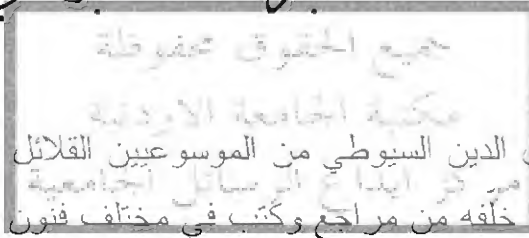 جميع الحقوق محفوظة
مكتبة الجامعة الاردنية
الدين السيوطي من الموسوعيين القلائل
مركز ايداع الرسائل الجامعية
خلفه من مراجع وكتب في مختلف فنون